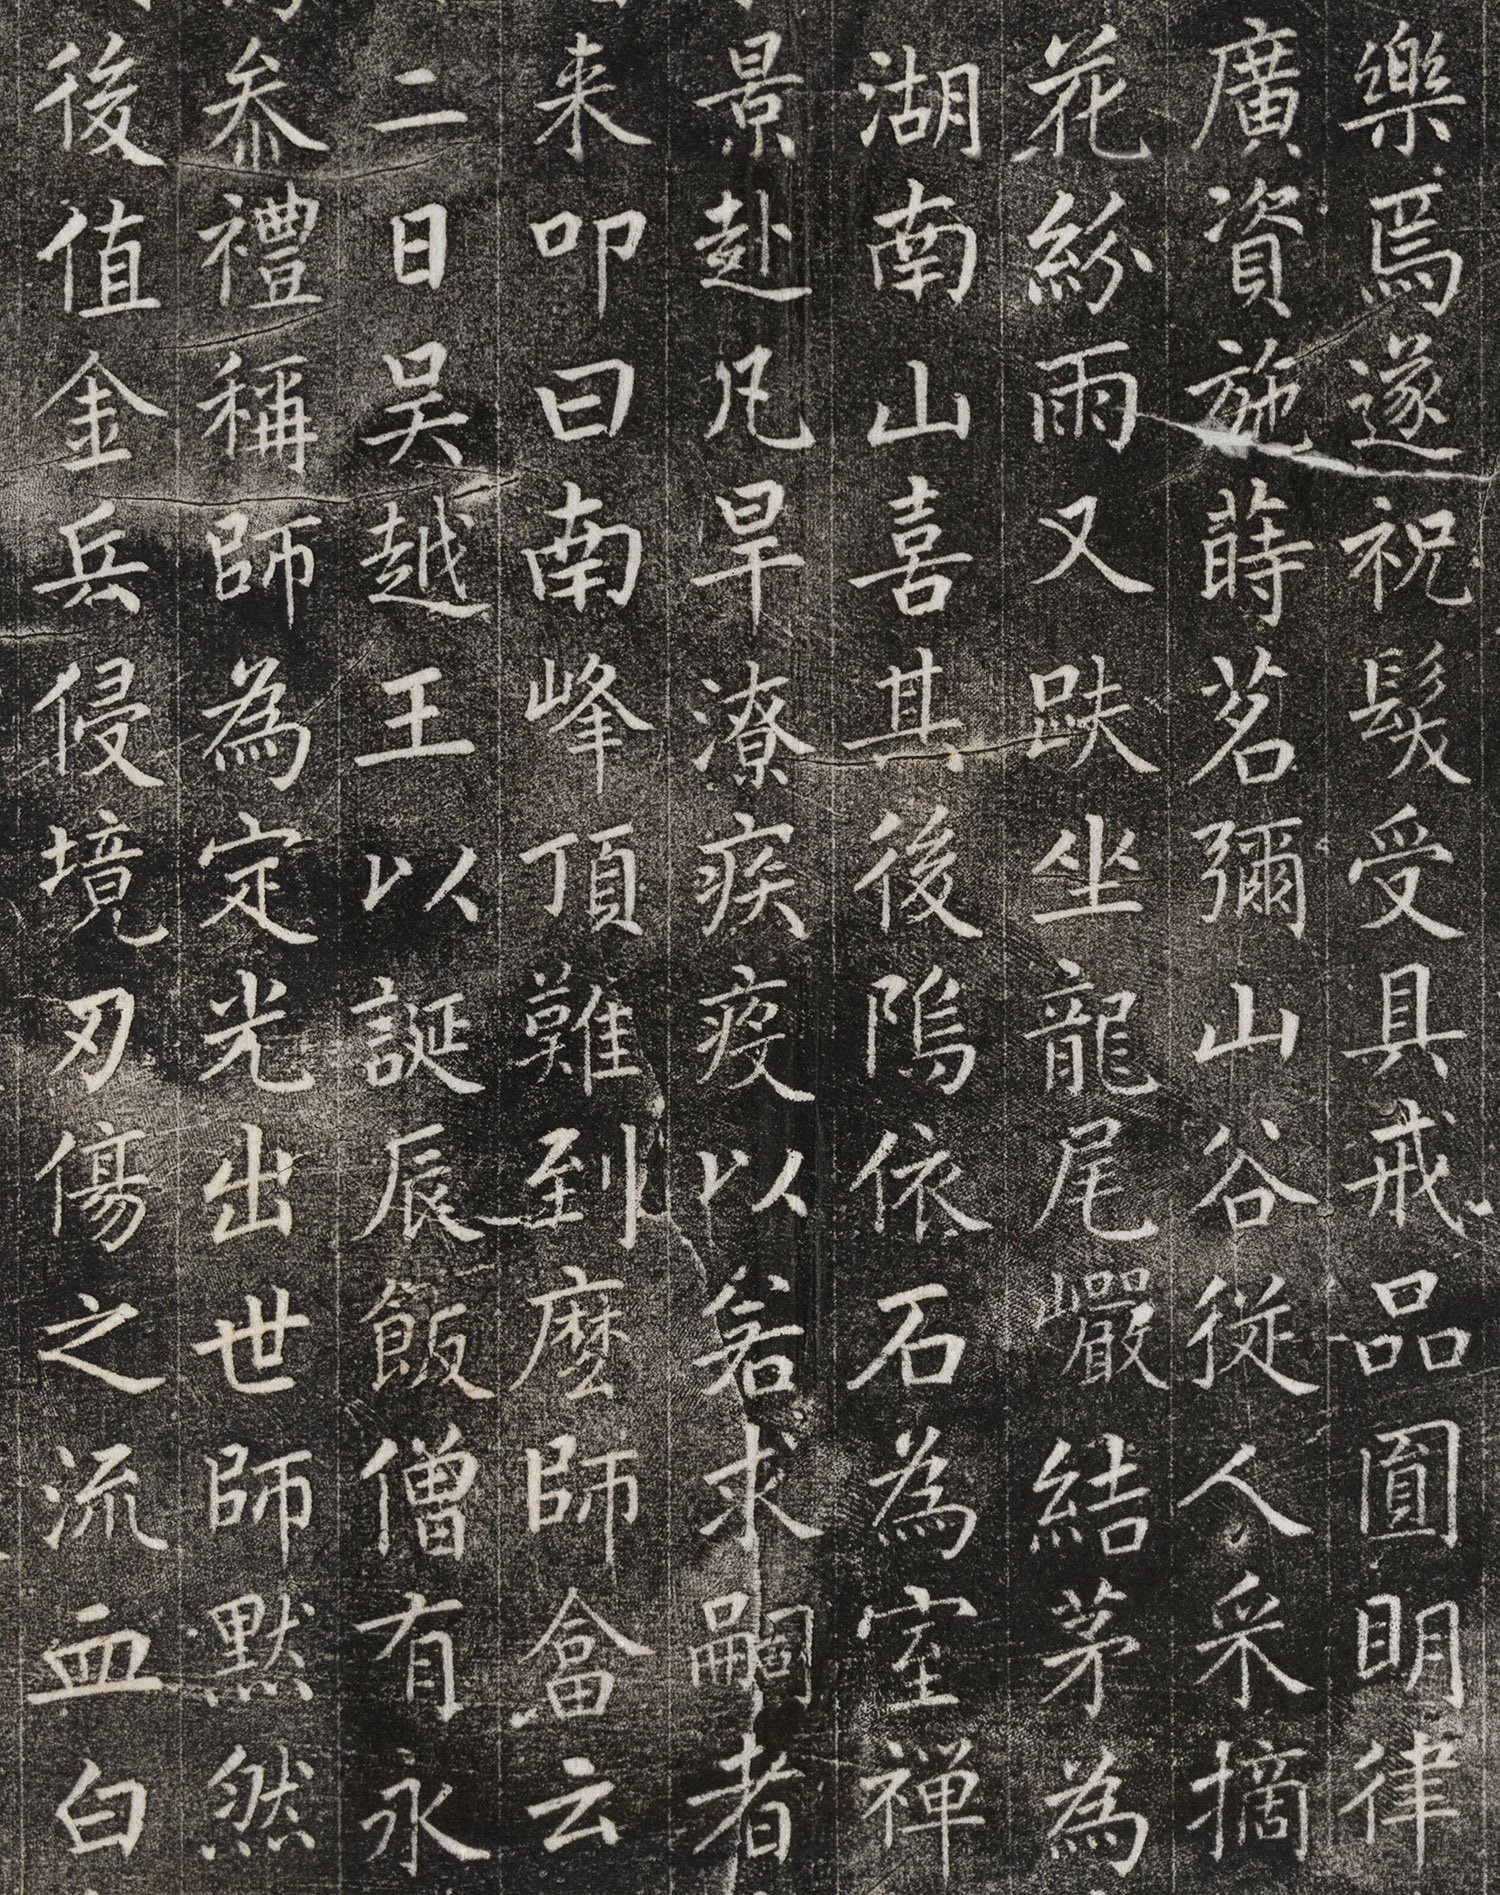 樂焉遂祝髮受具戒品圓明律
廣資施蒔茗彌山谷從人采摘
花紛雨又趺坐龍尾巖結茅為
湖南山喜其後隖依石為室禪
景赴凡旱潦疾疫以若求嗣者
来叩曰南峰頂難到麼師畣云
二日吴越王以誕辰飯僧有永
叅禮稱師為定光出世師默然
後值金兵侵境刃傷之流血白